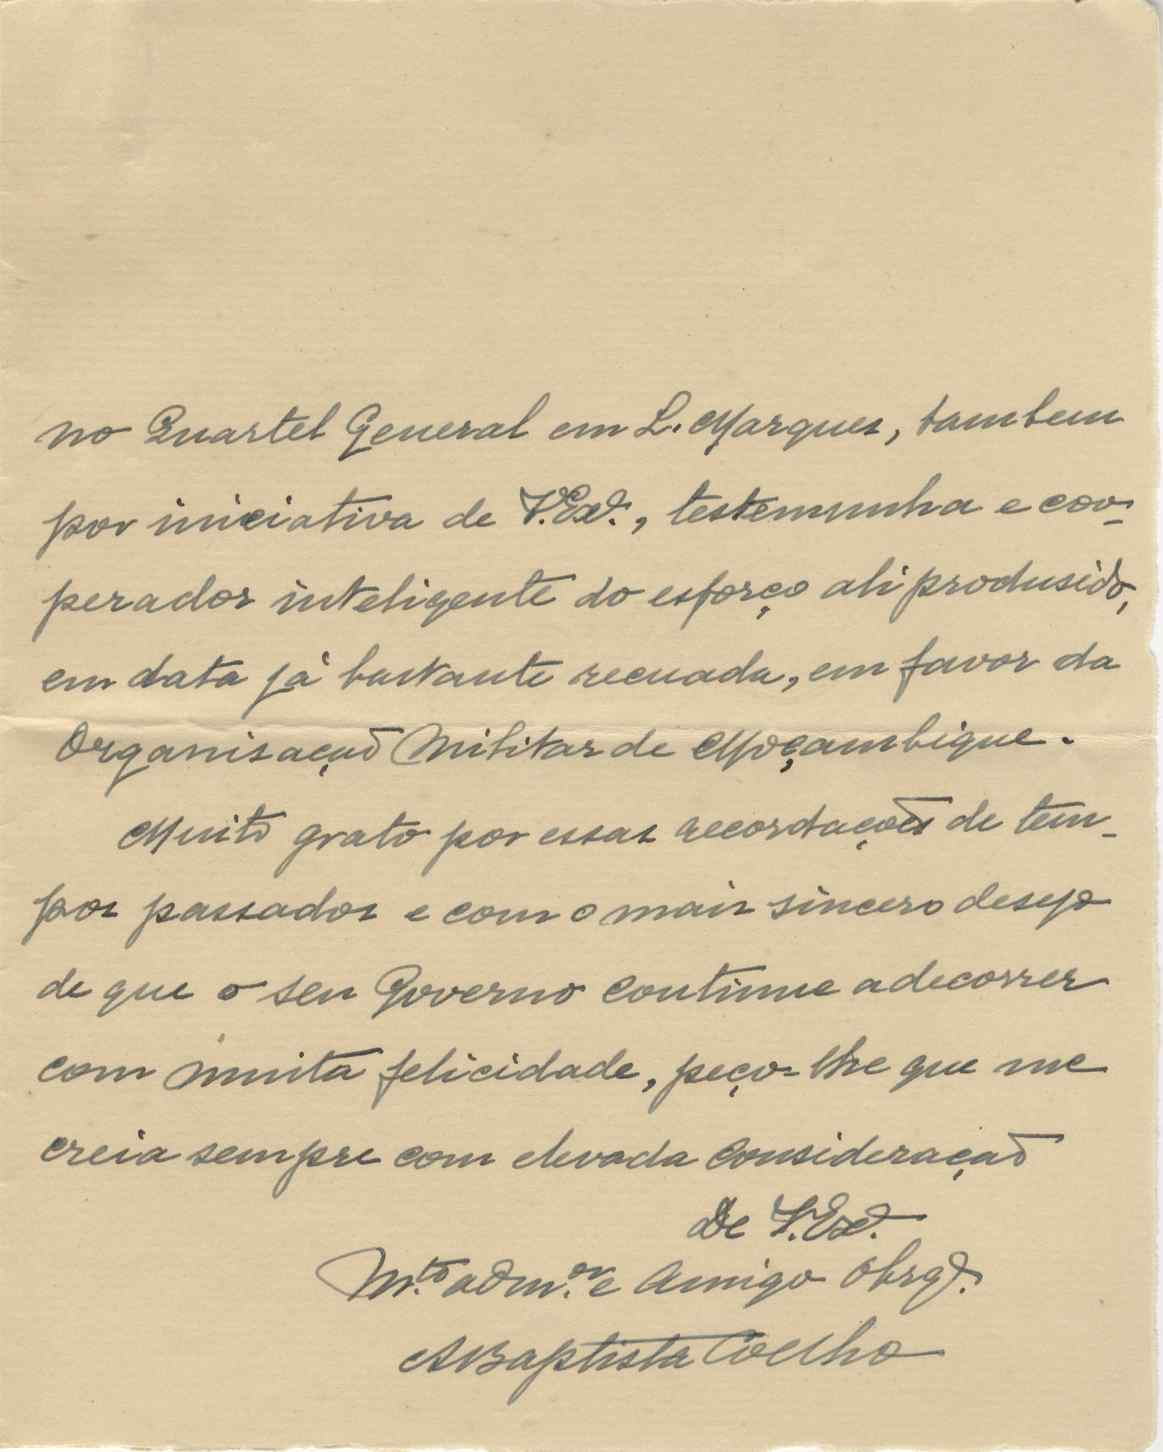 no Quartel General em L. Marques, tambem
por iniciativa de V. Exª., testemunha e coo-
perador inteligente do esforço ali produsido,
em data já bastante recuada, em favor da
Organisação Militar de Moçambique.
Muito grato por essas recordações de tem-
pos passados e com o mais sincero desejo
de que o seu Governo continue a decorrer
com muita felicidade, peço-lhe que me
creia sempre com elevada consideração
De V. Exª.
M.to adm.or e Amigo Obrgº.
ABaptista Coelho